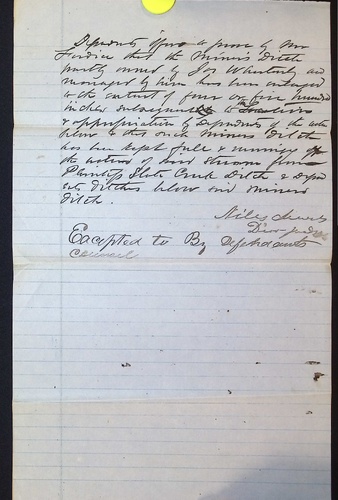 Defendants offers to prove by Mr
that the Miners Ditch
partly owned by Jos and
managed by him has been enlarged
to the extent of four or five hundred
inches subsequently to the location
& appropriation by Defendants of the water
below & that said Miners Ditch
has been kept full & running
the waters of said stream from
Slate Creek Ditch &
Ditches below said miners
Ditch.
Niles Searls
Dis Judge
Excepted to By Defendants
Council